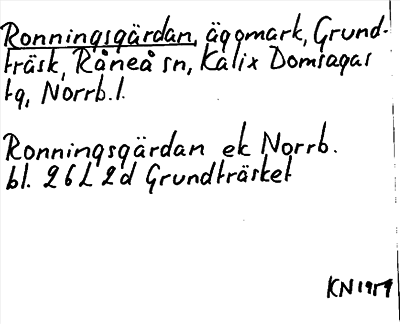 Ronningsgärdan, ägomark, Grund-
träsk, Råneå sn, Kalix Domsagas
tg, Norrb. l.
Ronningsgärdan ek Norrb.
bl. 26L 2d Grundträsket
KN 1959